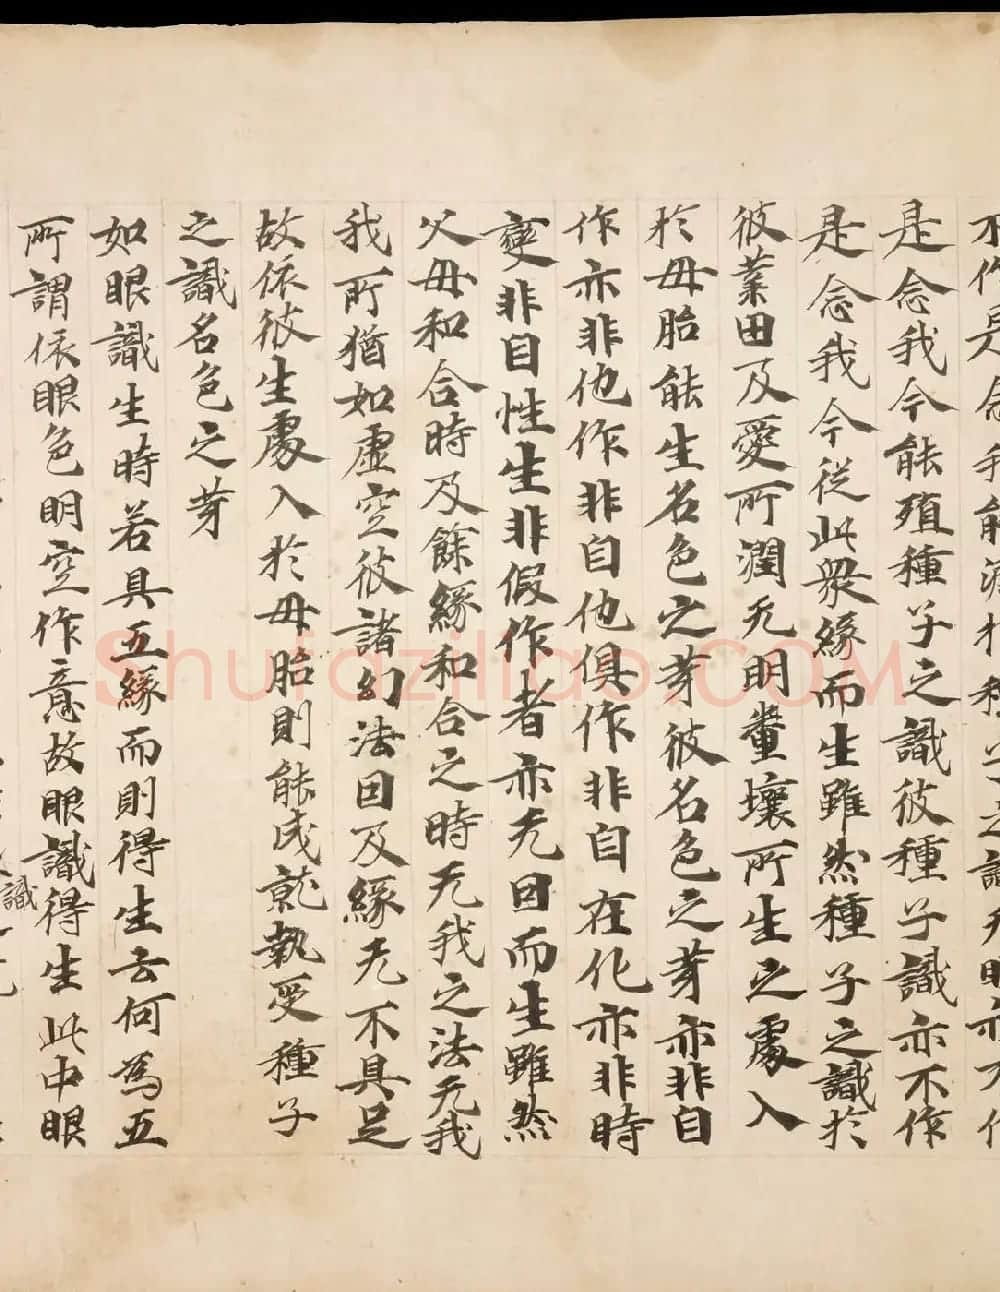 不作是念我能
是念我今能殖種子之識彼種子識亦不作
是念我今從此衆緣而生雖然種子之識於
彼業田及愛所潤无明糞壤所生之處入
於母胎能生名色之芽彼名色之芽亦非自
作亦非他作非自他俱作非自在化亦非時
變非自性生非假作者亦无因而生雖然
父母和合時及餘緣和合之時无我之法无我
我所猶如虛空彼諸幻法因及緣无不具足
故依彼生處入於母胎則能成就執受種子
之識名色之芽
如眼識生時若具五緣而則得生云何為五
所謂依眼色明空作意故眼識得生此中眼
識
Shufaziliao.COM